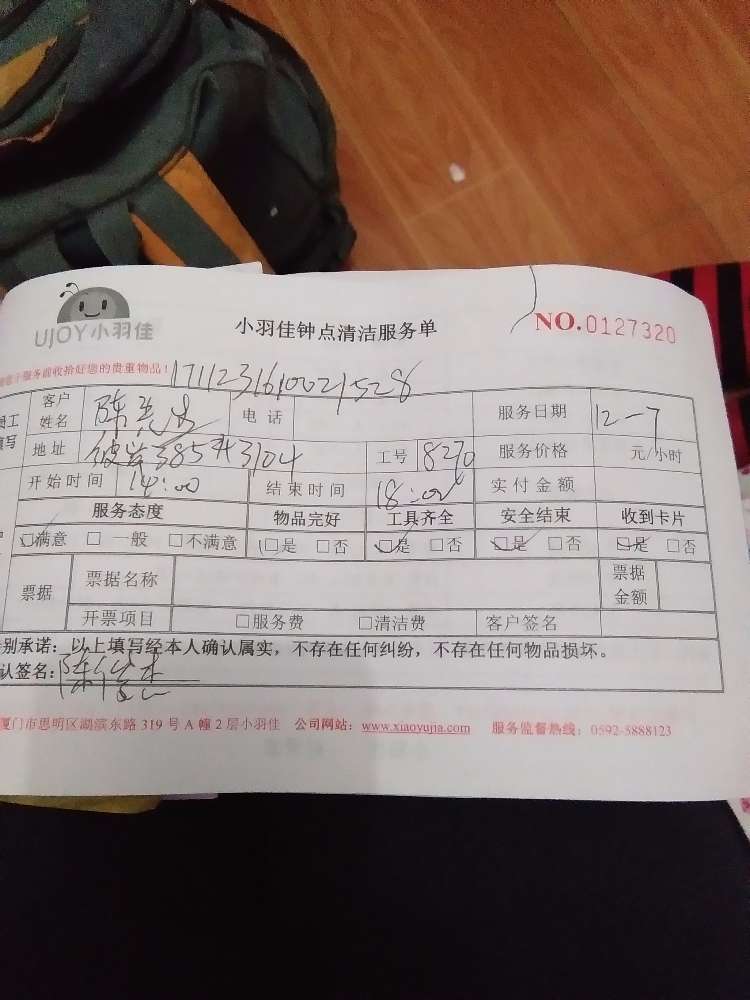 UJOY小羽佳
小羽佳钟点清洁服务单
NO.0127320
服务前收拾好您的贵重物品!
1711231610021528
客户姓名 陈 电话 服务日期 12-7
地址 385#3104 工号 8270 服务价格 元/小时
开始时间 14:00 结束时间 18:00 实付金额
服务态度 物品完好 工具齐全 安全结束 收到卡片
□满意 □一般 □不满意 □是 □否 □是 □否 □是 □否 □是 □否
票据 票据名称 票据金额
开票项目 □服务费 □清洁费 客户签名
别承诺：以上填写经本人确认属实，不存在任何纠纷，不存在任何物品损坏。
认签名:
厦门市思明区湖滨东路 319 号 A 幢 2 层小羽佳 公司网站：www.xiaoyujia.com 服务监督热线：0592-5888123